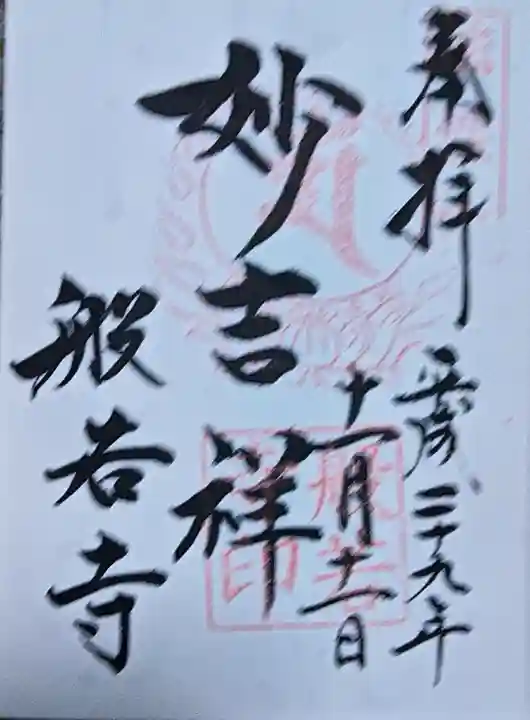 奉拝
平成二十九年
十一月十一日
妙吉祥
般若寺
般若寺印